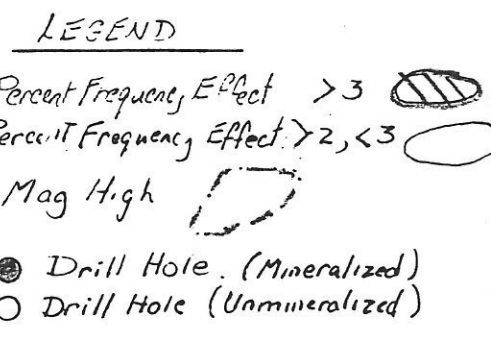 LEGEND
Percent Frequency Effect >3
Percent Frequency Effect >2, <3
Mag High
Drill Hole. (Mineralized)
Drill Hole (Unmineralized)